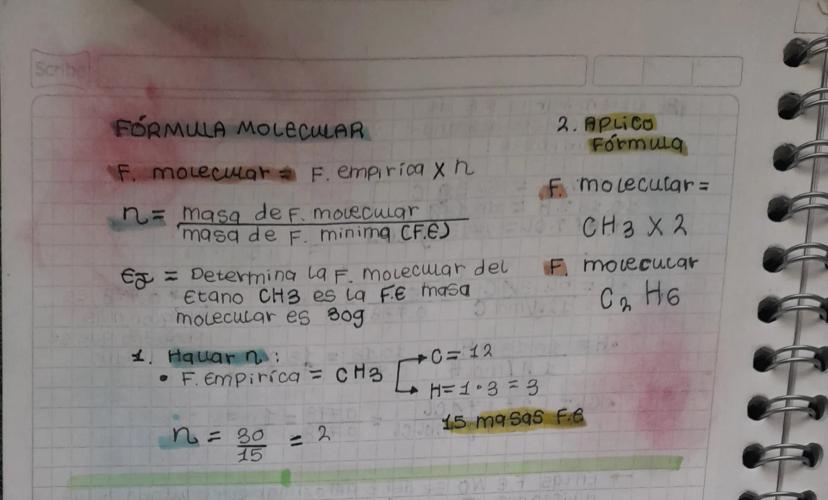 Scribe
FÓRMULA MOLECULAR
F. molecular = F. empirica x n
n = masa de F. molecular
masa de F. minima (F.E)
Ej = Determina la F. molecular del
Etano CH3 es la F.E masa
molecular es 30g
1. Hallar n :
• F. Empirica = CH3
C = 12
H = 1 · 3 = 3
15 masas F.E
n = 30 = 2
15
2. Aplico
Fórmula
F. molecular =
CH3 X 2
F. molecular
C2 H6